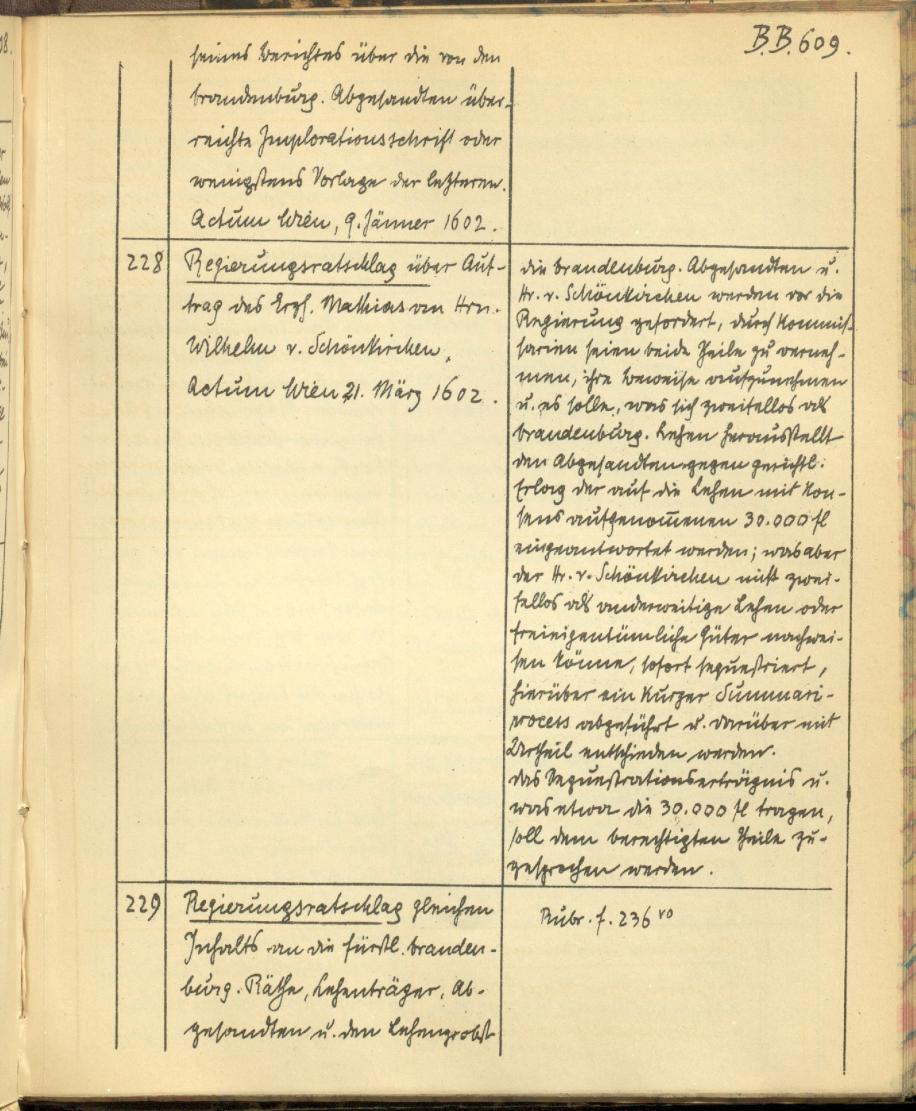 B.B. 609.
seines Berichtes über die von den
brandenburg. Abgesandten über-
reichte Implorationsschrift oder
wenigstens Vorlage der letzteren.
Actum Wien, 9. Jänner 1602.
228
Regierungsratschlag über Auf-
trag des Erzh. Mathias von Hrn.
Wilhelm v. Schönkirchen,
Actum Wien 21. März 1602.
die brandenburg. Abgesandten u.
Hr. v. Schönkirchen werden vor die
Regierung gefordert, durch Kommis-
sarien seien beide Theile zu verneh-
men, ihre Beweise aufzunehmen
u. es solle, was sich zweifellos als
brandenburg. Lehen herausstellt
den Abgesandten gegen gerichtl.
Erlag der auf die Lehen mit Kon-
sens aufgenom̅enen 30.000 fl
eingeantwortet werden; was aber
der Hr. v. Schönkirchen nicht zwei-
fellos als anderweitige Lehen oder
freieigentümliche Güter nachwei-
sen könne, sofort sequestriert,
hierüber ein Kurzer Summari-
process abgeführt u. darüber mit
Urtheil entschieden werden.
das Sequestrationserträgnis u.
was etwa die 30.000 fl tragen,
soll dem berechtigten Theile zu-
gesprochen werden.
229
Regierungsratschlag gleichen
Inhalts an die fürstl. branden-
burg. Räthe, Lehenträger, Ab-
gesandten u. den Lehenprobst
Rubr. f. 236 vo